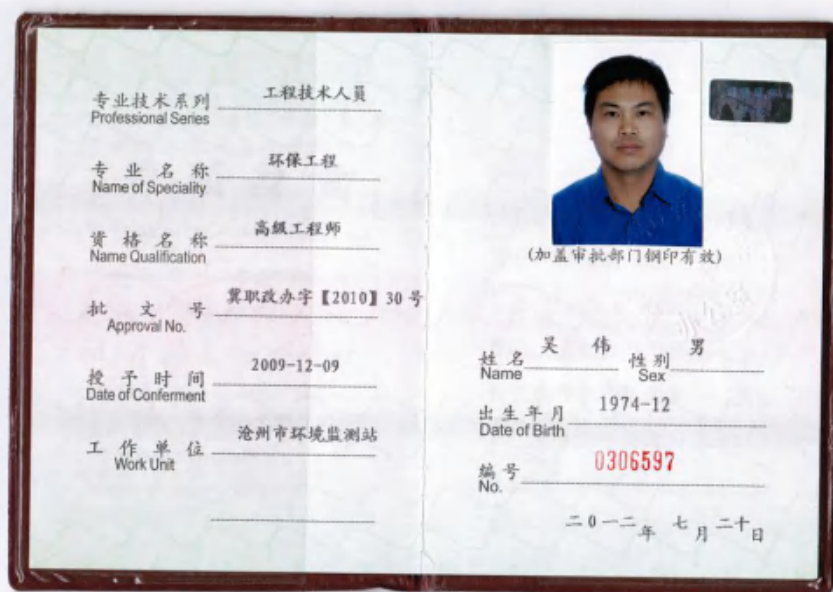 专业技术系列 工程技术人员
Professional Series
专业名称 环保工程
Name of Speciality
资格名称 高级工程师
Name Qualification
批文号 冀职改办字【2010】30号
Approval No.
授予时间 2009-12-09
Date of Conferment
工作单位 沧州市环境监测站
Work Unit
(加盖审批部门钢印有效)
姓名 吴伟 性别 男
Name Sex
出生年月 1974-12
Date of Birth
编号 0306597
No.
二0一二年七月二十日